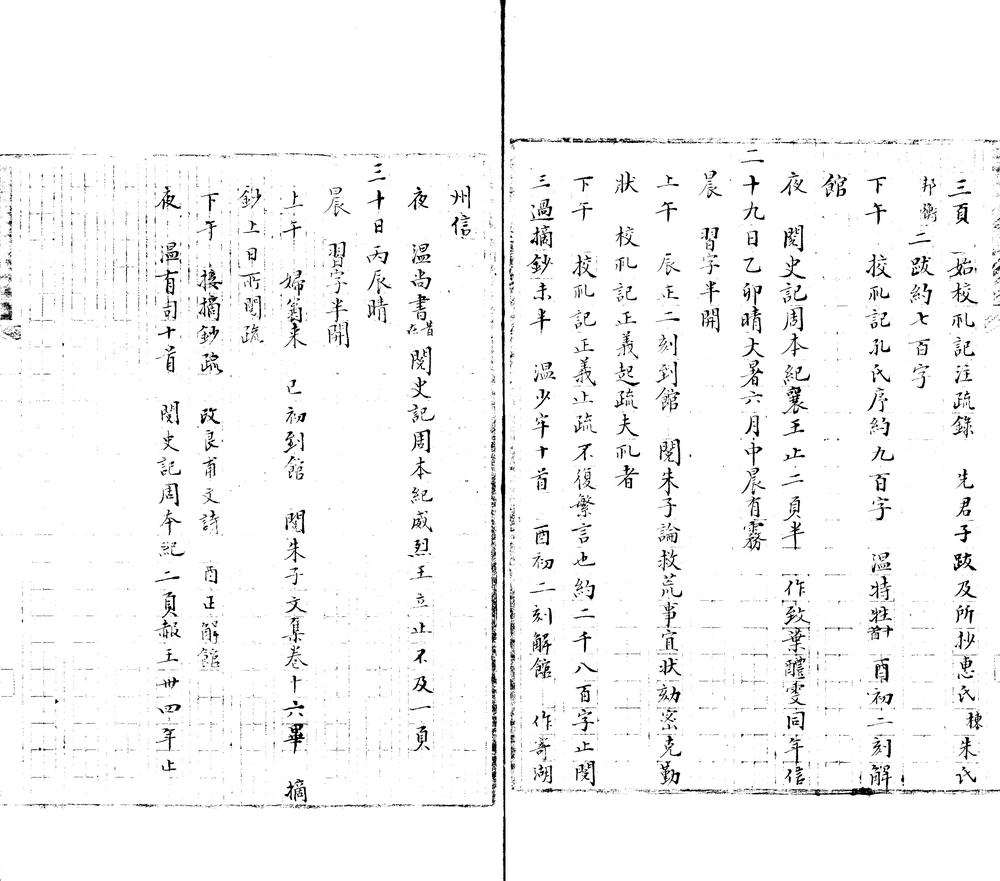 三頁　始校礼記注疏錄　先君子跋及所抄惠氏棟朱氏
邦衡二跋約七百字
下午　挍礼記孔氏序約九百字　温特牲十首　酉初二刻解
館
夜　閱史記周本紀襄王止二頁半　作致葉醴雯同年信
二十九日乙卯晴大暑六月中晨有霧
晨　習字半開
上午　辰正二刻到館　閱朱子論救荒事宜狀劾密克勤
狀　校礼記正義起疏夫礼者
下午　挍礼記正義止疏不復繁言也約二千八百字止閱
三過摘鈔未半　温少牢十首　酉初二刻解館　作寄湖
州信
夜　温尚書　閱史記周本紀威烈王立止不及一頁
三十日丙辰晴
晨　習字半開
上午　婦翁来　巳初到館　閱朱子文集卷十六畢　摘
鈔上日所閱疏
下午　接摘鈔疏　改良甫文詩　酉正解館
夜　温有司十首　閱史記周本紀二頁赧王卅四年止